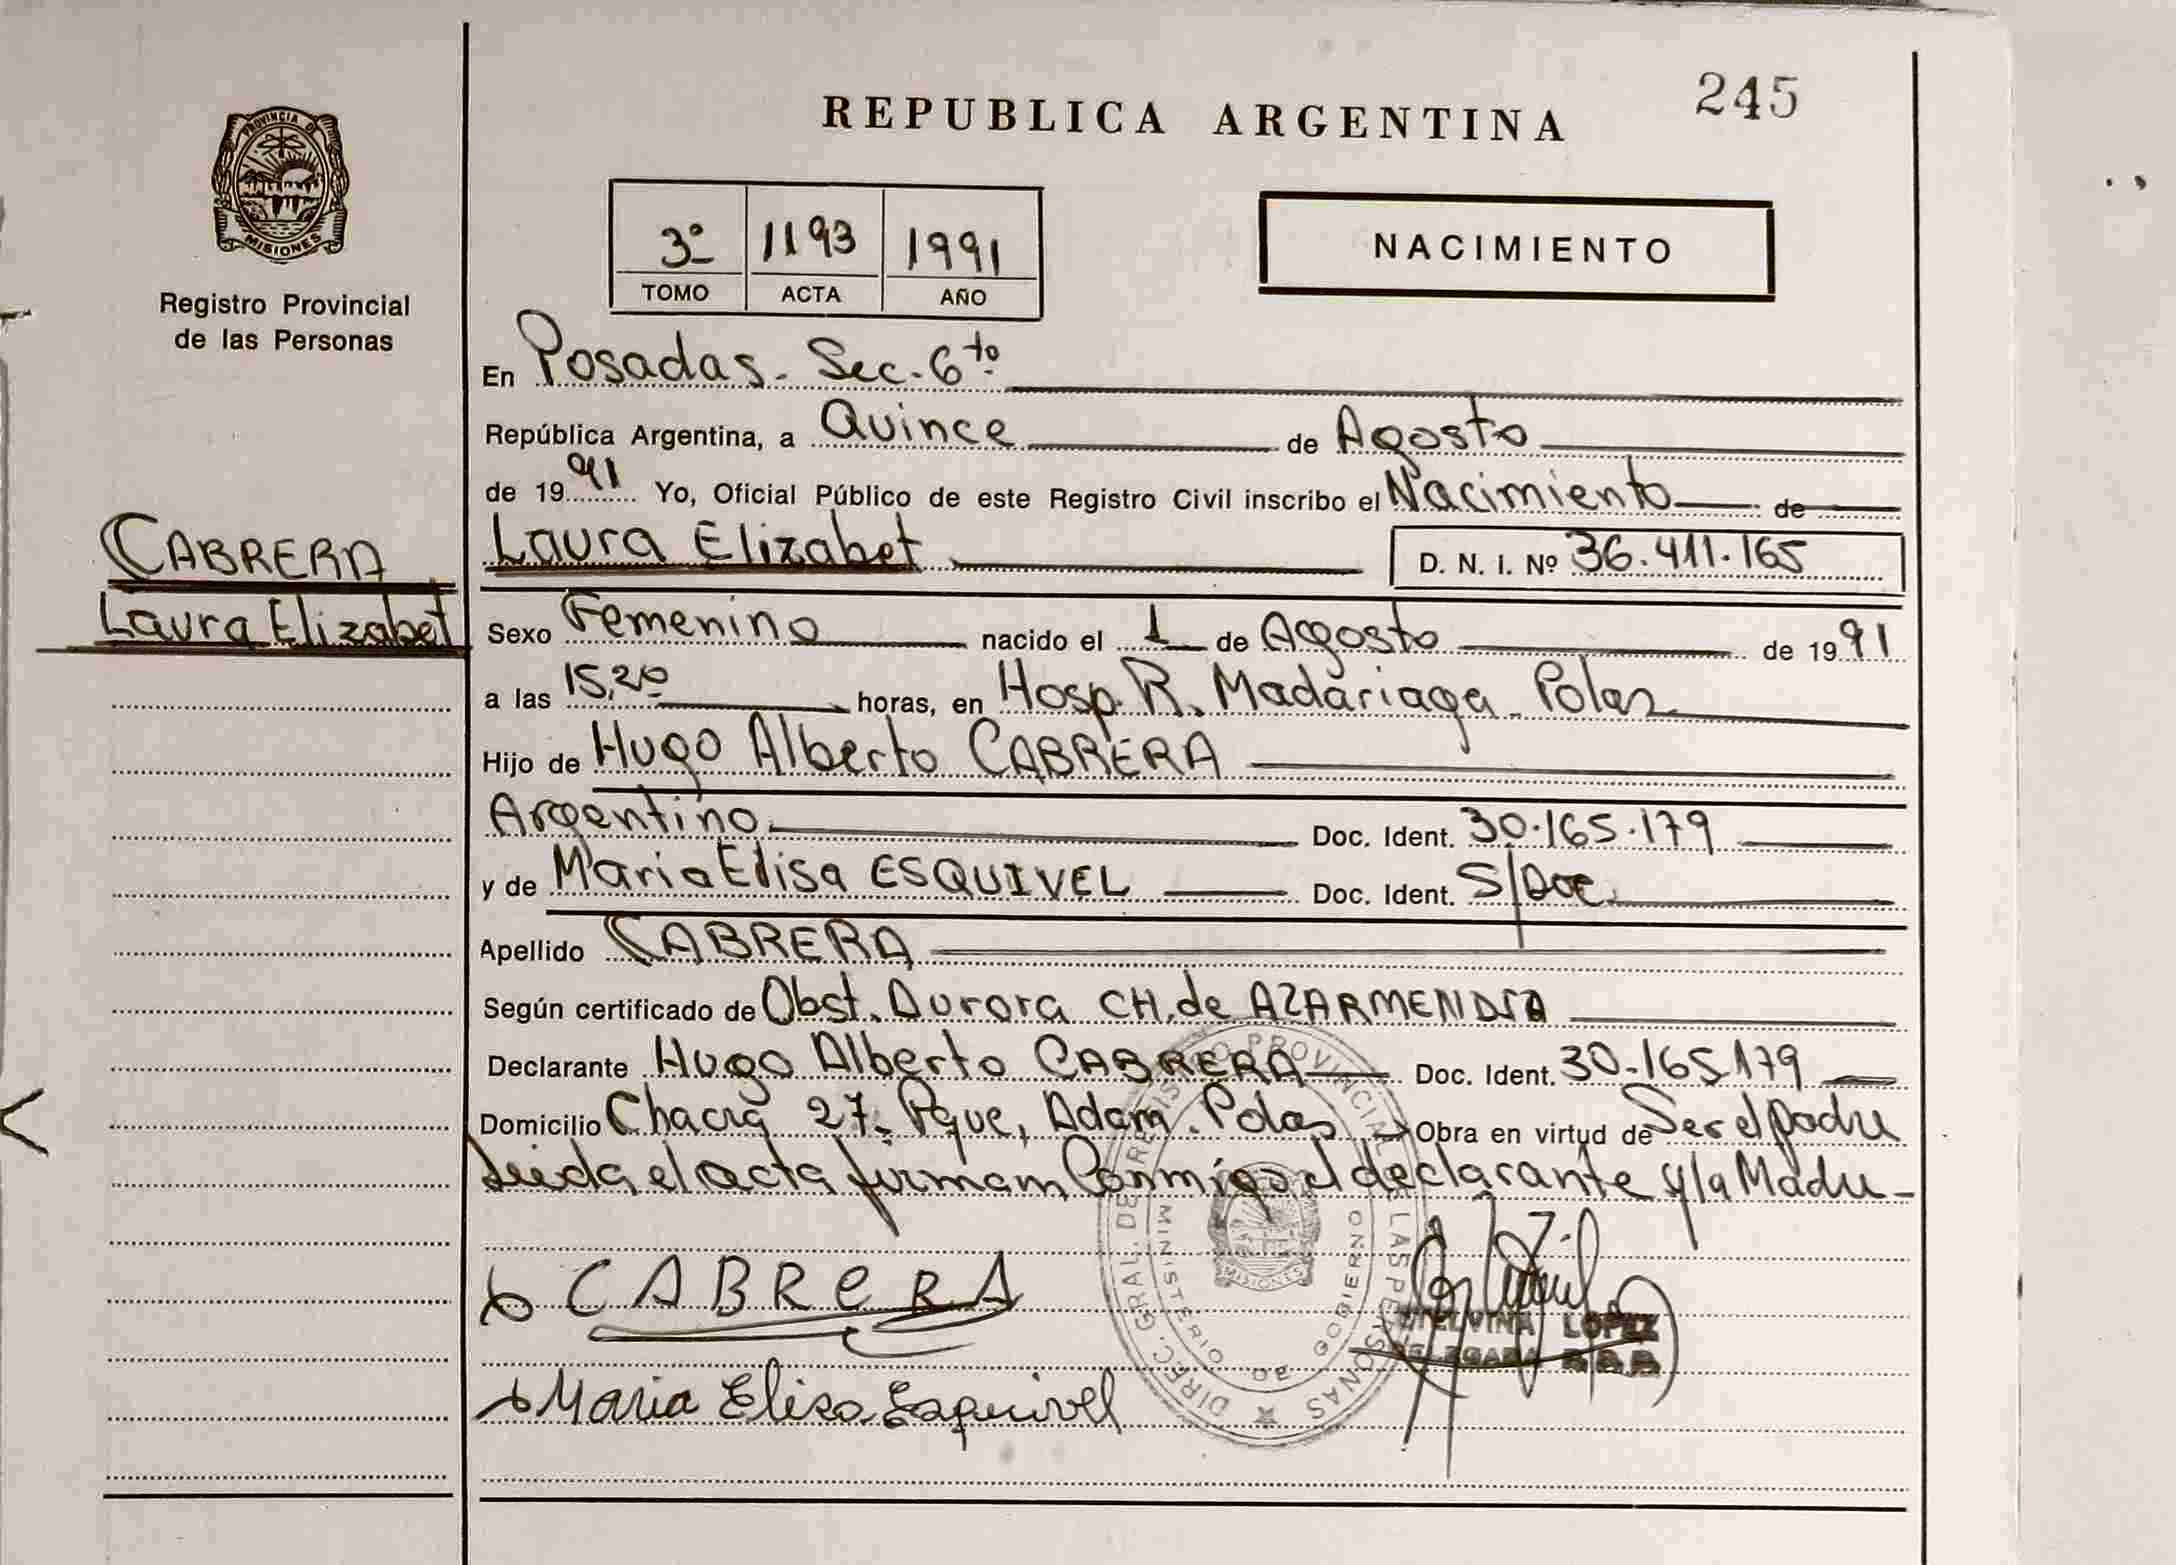 REPUBLICA ARGENTINA
245
PROVINCIA DE
MISIONES
Registro Provincial
de las Personas
3º 1193 1991
TOMO ACTA AÑO
NACIMIENTO
En Posadas. Sec. 6to
República Argentina, a Quince de Agosto
de 1991 Yo, Oficial Público de este Registro Civil inscribo el Nacimiento de
CABRERA
Laura Elizabet
Laura Elizabet D. N. I. Nº 36.411.165
Sexo Femenino nacido el 1 de Agosto de 1991
a las 15,20 horas, en Hosp. R. Madariaga
Hijo de Hugo Alberto CABRERA
Argentino. Doc. Ident. 30.165.179
y de Maria Elisa ESQUIVEL Doc. Ident. S/Doc.
Apellido CABRERA
Según certificado de Obst. Aurora CH. de AZARMENDIA
Declarante Hugo Alberto CABRERA Doc. Ident. 30.165179
Domicilio Chacra 27. Adam. Obra en virtud de Ser el padre
Leida el acta firman Conmigo el declarante y la Madre
CABReRA
Maria Elisa Esquivel
DIREC. GRAL. DE REGISTRO PROVINCIAL DE LAS PERSONAS
MINISTERIO DE GOBIERNO
MISIONES
LOPEZ
DELEGADA